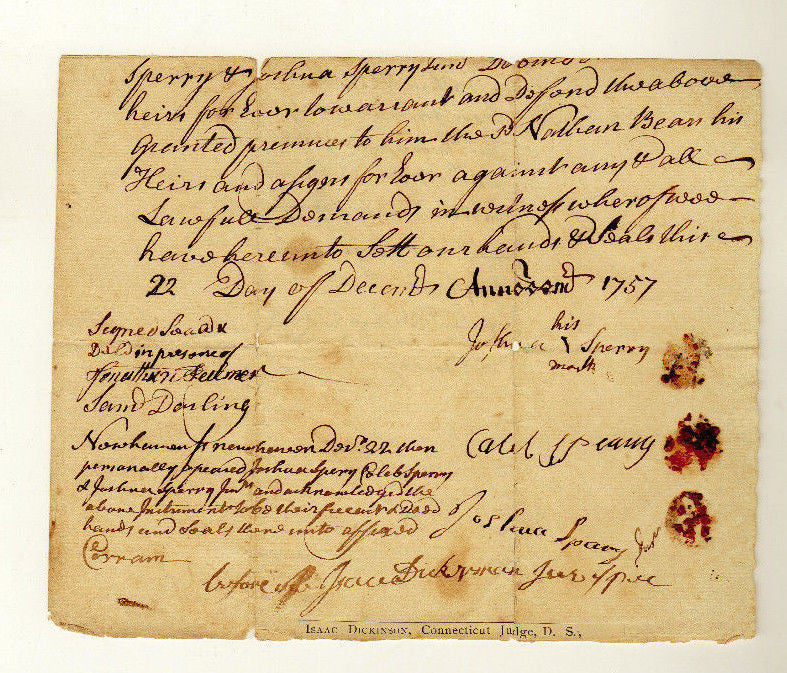 Sperry & Joshua Sperry Junr Do
heirs for Ever to warrant and Defend the above
Granted premises to him the sd Nathan Beers his
Heirs and asigns for Ever against any & all
Lawfull Demands in witness wherof wee
have hereunto Sett our hands & Seals this
22 Day of Decembr Annodom 1757
Signed Seald &
Deld in presence of
his
Joshua Sperry
mark
Jonathan
Samll Darling
Newhaven Sr newhaven Decr. 22 then
Caleb Sperry
personally apeared Joshua Spery Caleb Sperry
& Joshua Sperry Junr and acknowledged the
above Instrument to be their free act & Deed
hands and Seals thereunto affixed
Joshua Sperry Junr
Corram
before me Isaac Dickerman Jus Pac
Isaac Dickinson, Connecticut Judge, D. S.,